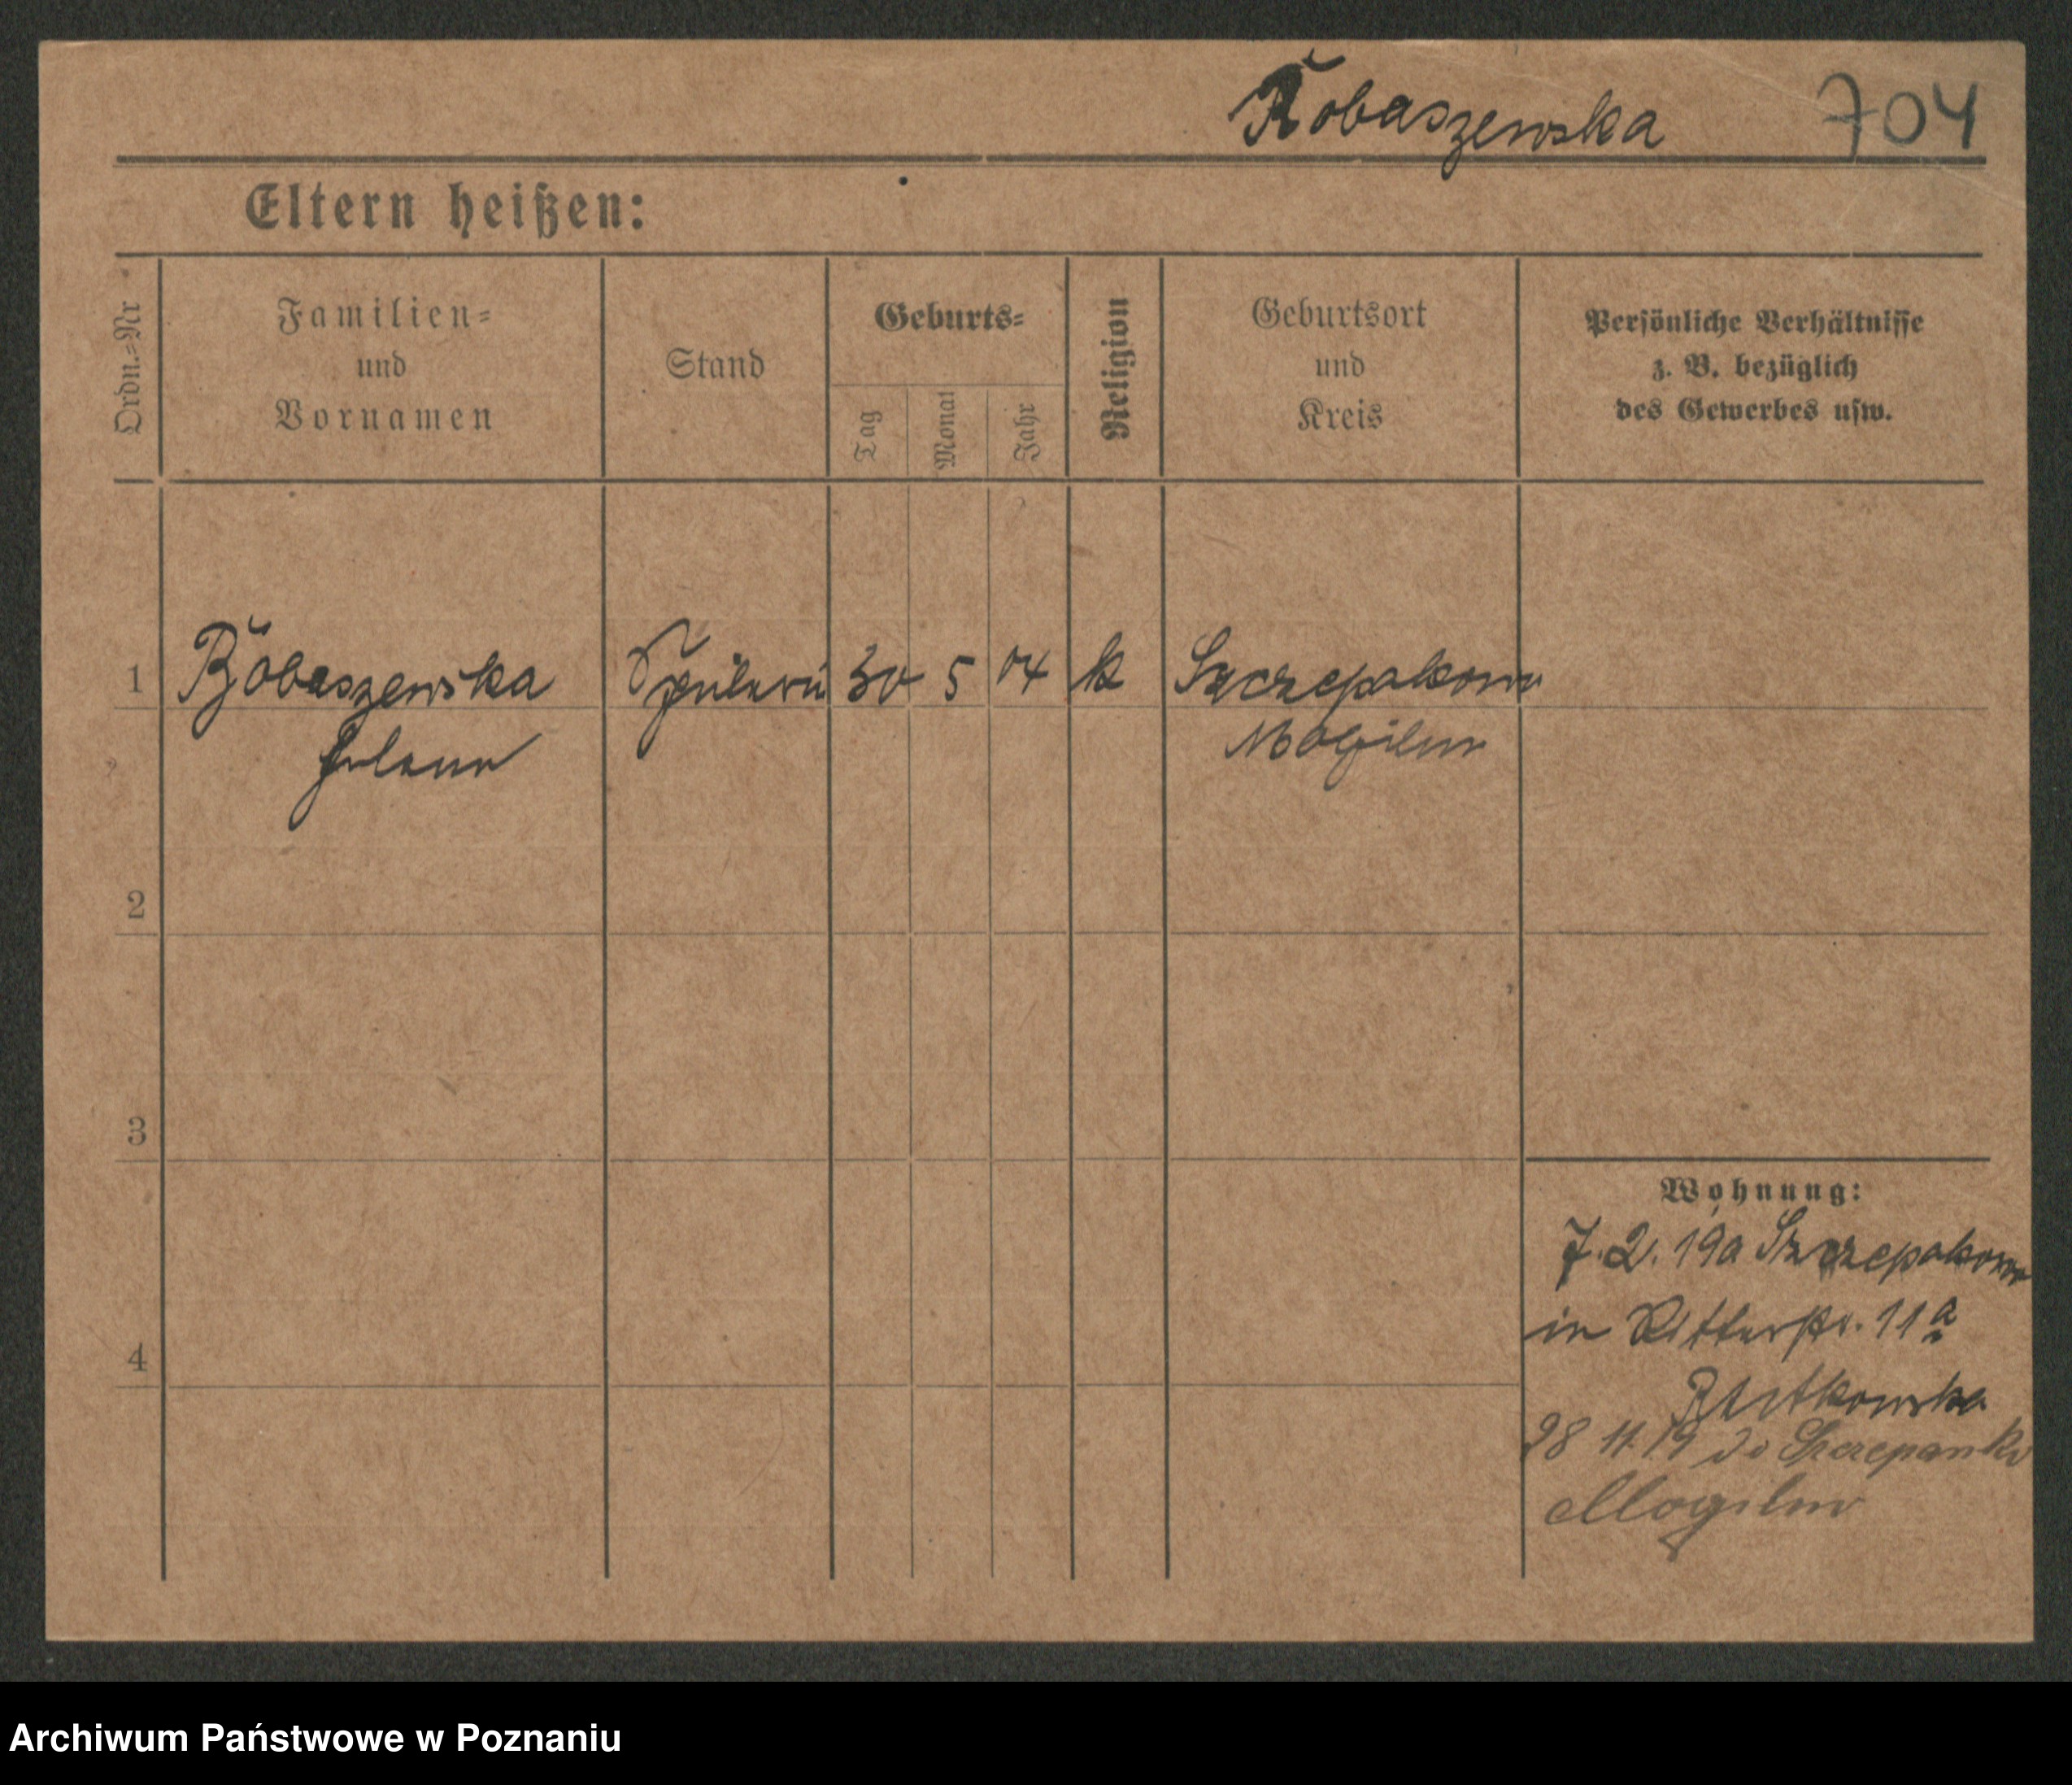 Robaszewska 704
Eltern heißen:
Ordn.-Nr
Familien-
und
Vornamen
Stand
Geburts-
Tag
Monat
Jahr
Religion
Geburtsort
und
Kreis
Persönliche Verhältnisse
z. B. bezüglich
des Gewerbes usw.
1 Robaszewska 30 5 04 k Szczepakowo
Mogilno
2
3
4
Wohnung:
7.2.19 a Szczepakowo
in Ritterstr. 11a
Rutkowska
28 11 19 do Szczepank
Mogilno
Archiwum Państwowe w Poznaniu